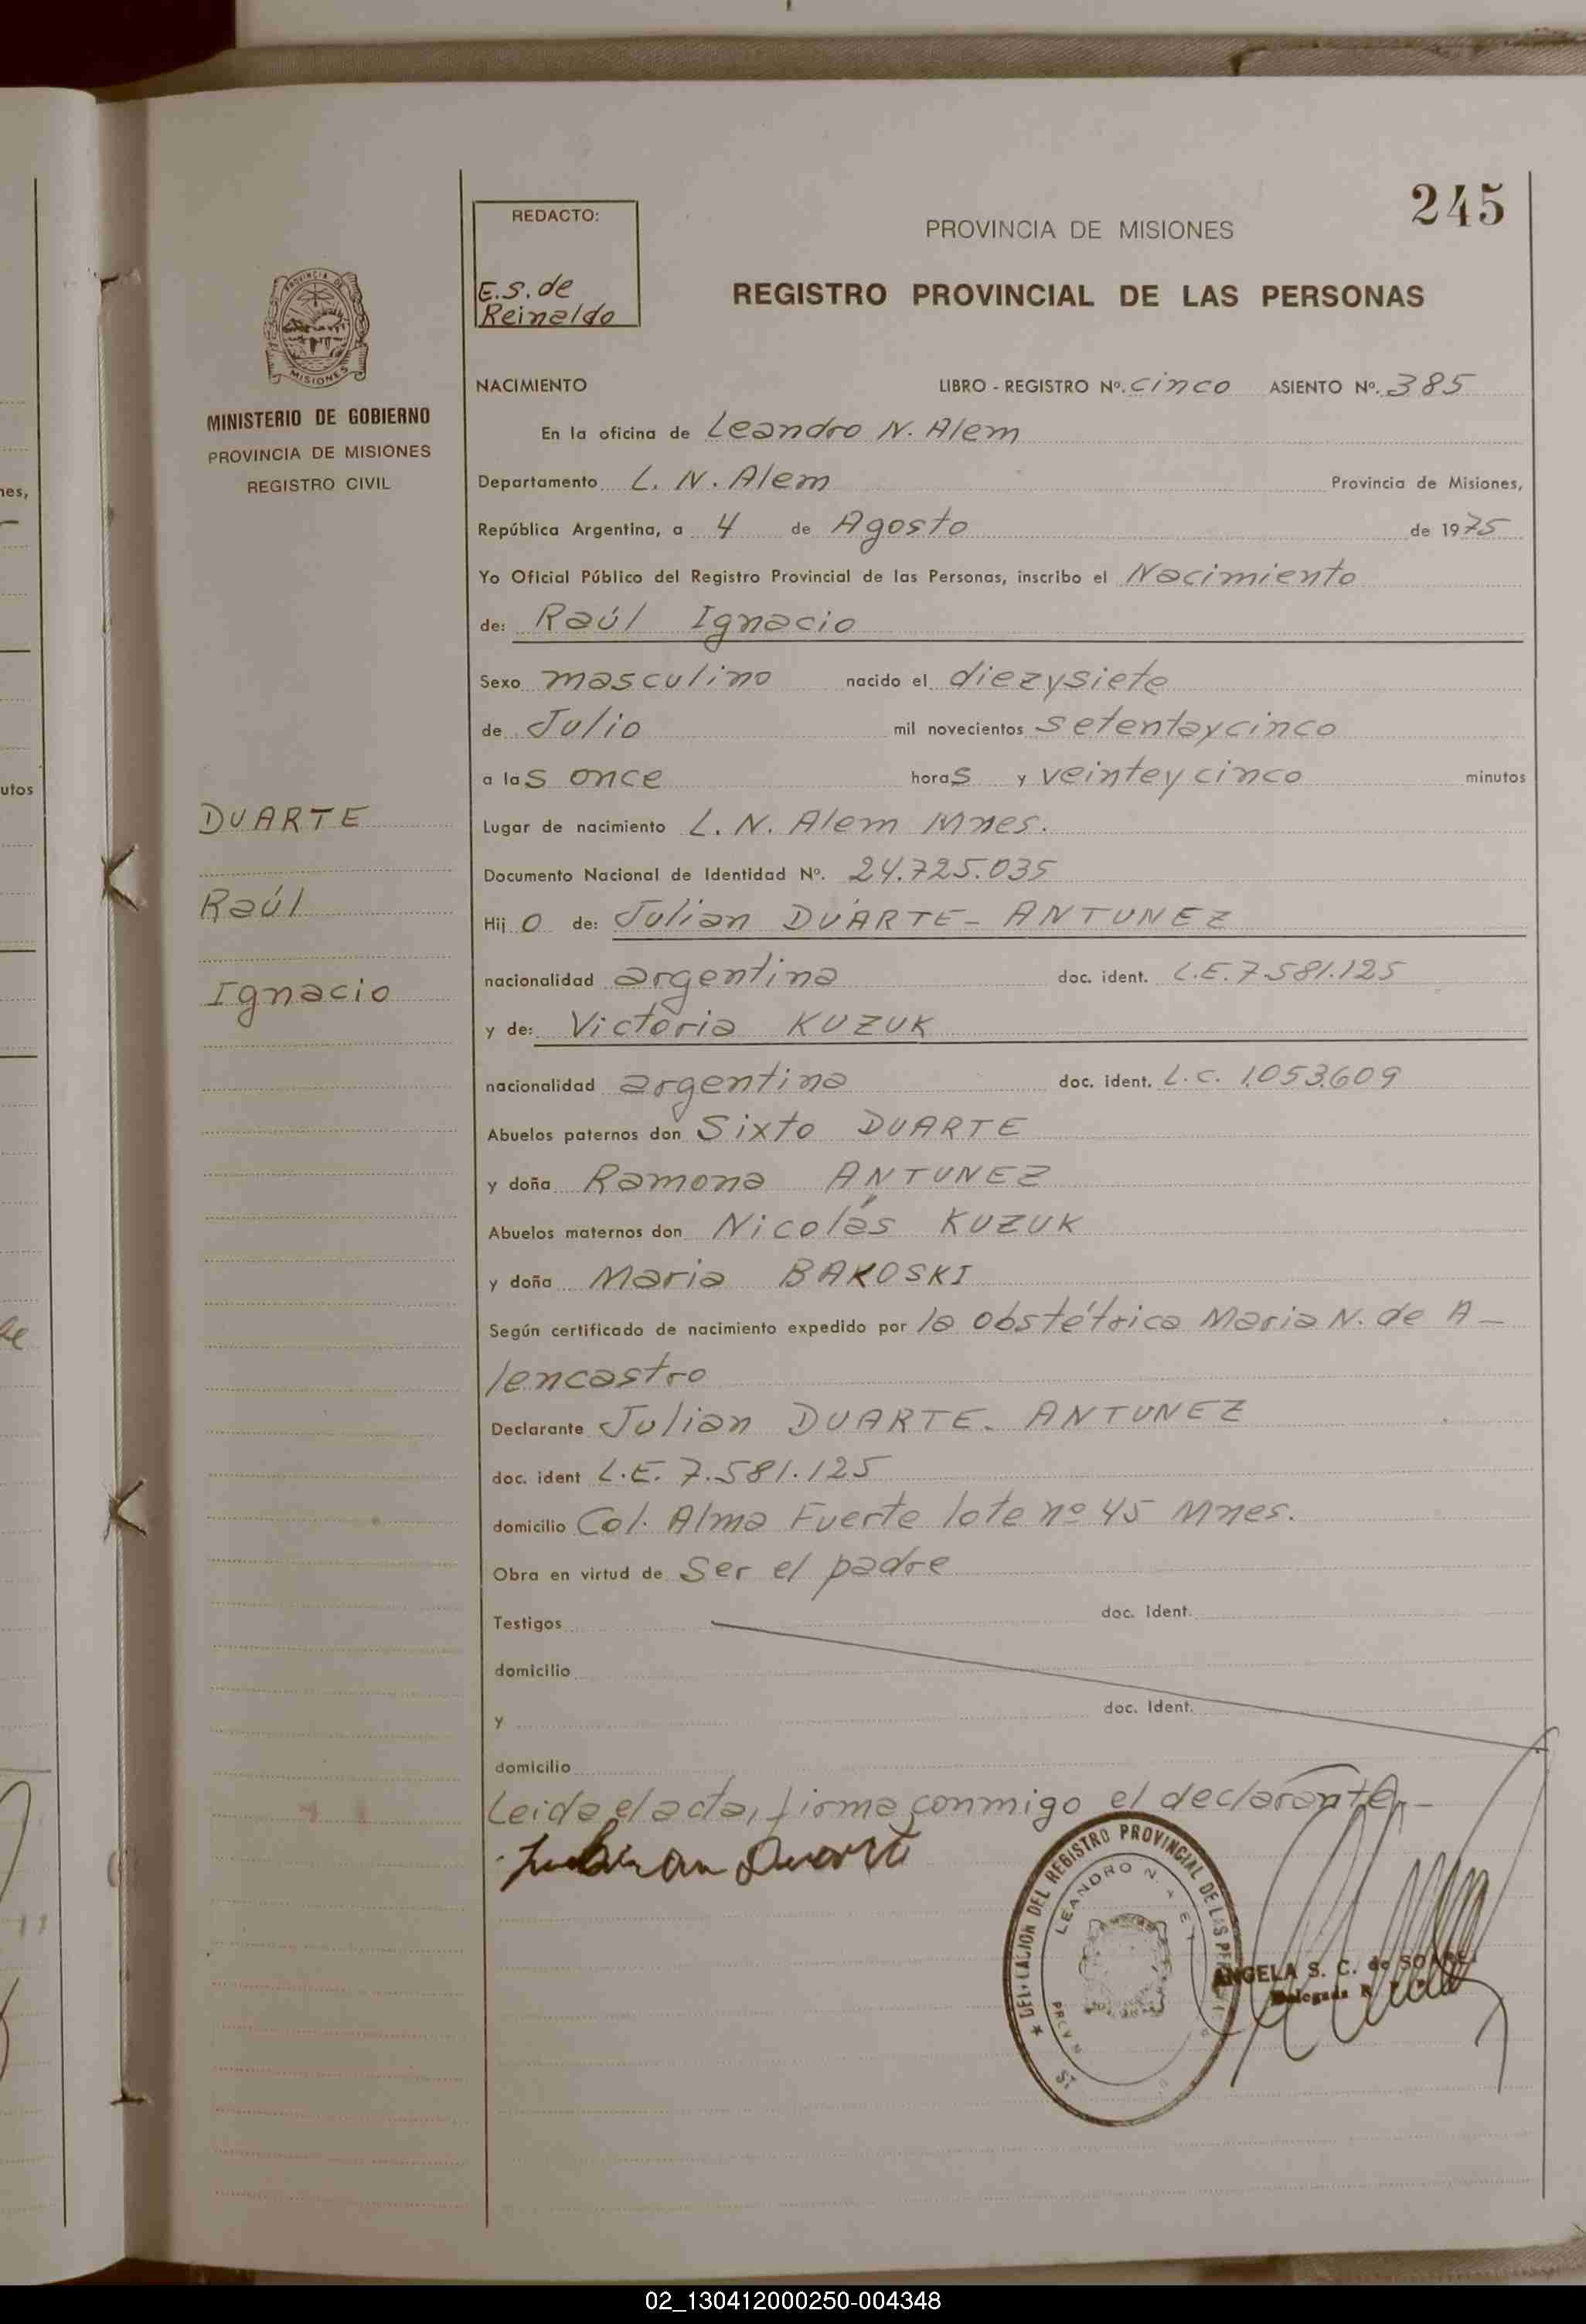 245
REDACTO:
E.S. de
Reinaldo
PROVINCIA DE MISIONES
REGISTRO PROVINCIAL DE LAS PERSONAS
PROVINCIA DE
MISIONES
MINISTERIO DE GOBIERNO
PROVINCIA DE MISIONES
REGISTRO CIVIL
NACIMIENTO LIBRO - REGISTRO Nº. cinco ASIENTO Nº. 385
En la oficina de Leandro N. Alem
Departamento L. N. Alem Provincia de Misiones,
República Argentina, a 4 de Agosto de 1975
Yo Oficial Público del Registro Provincial de las Personas, inscribo el Nacimiento
de: Raúl Ignacio
Sexo masculino nacido el diezysiete
de Julio mil novecientos setentaycinco
a las once horas y veinteycinco minutos
DUARTE
Raúl
Ignacio
Lugar de nacimiento L. N. Alem Mnes.
Documento Nacional de Identidad Nº. 24.725.035
Hijo de: Julian DUARTE - ANTUNEZ
nacionalidad argentina doc. ident. L.E. 7.581.125
y de: Victoria KUZUK
nacionalidad argentina doc. ident. L.C. 1.053.609
Abuelos paternos don Sixto DUARTE
y doña Ramona ANTUNEZ
Abuelos maternos don Nicolás KUZUK
y doña Maria BAKOSKI
Según certificado de nacimiento expedido por la obstétrica Maria N. de A-
lencastro
Declarante Julian DUARTE - ANTUNEZ
doc. ident L.E. 7.581.125
domicilio Col. Alma Fuerte lote nº 45 Mnes.
Obra en virtud de ser el padre
Testigos doc. ident.
domicilio
y doc. ident.
domicilio
Leida el acta, firma conmigo el declarante.-
Duarte
DELEGACION DEL REGISTRO PROVINCIAL DE LAS
LEANDRO N.
ANGELA S. C. de
Delegada
nes,
utos
02_130412000250-004348